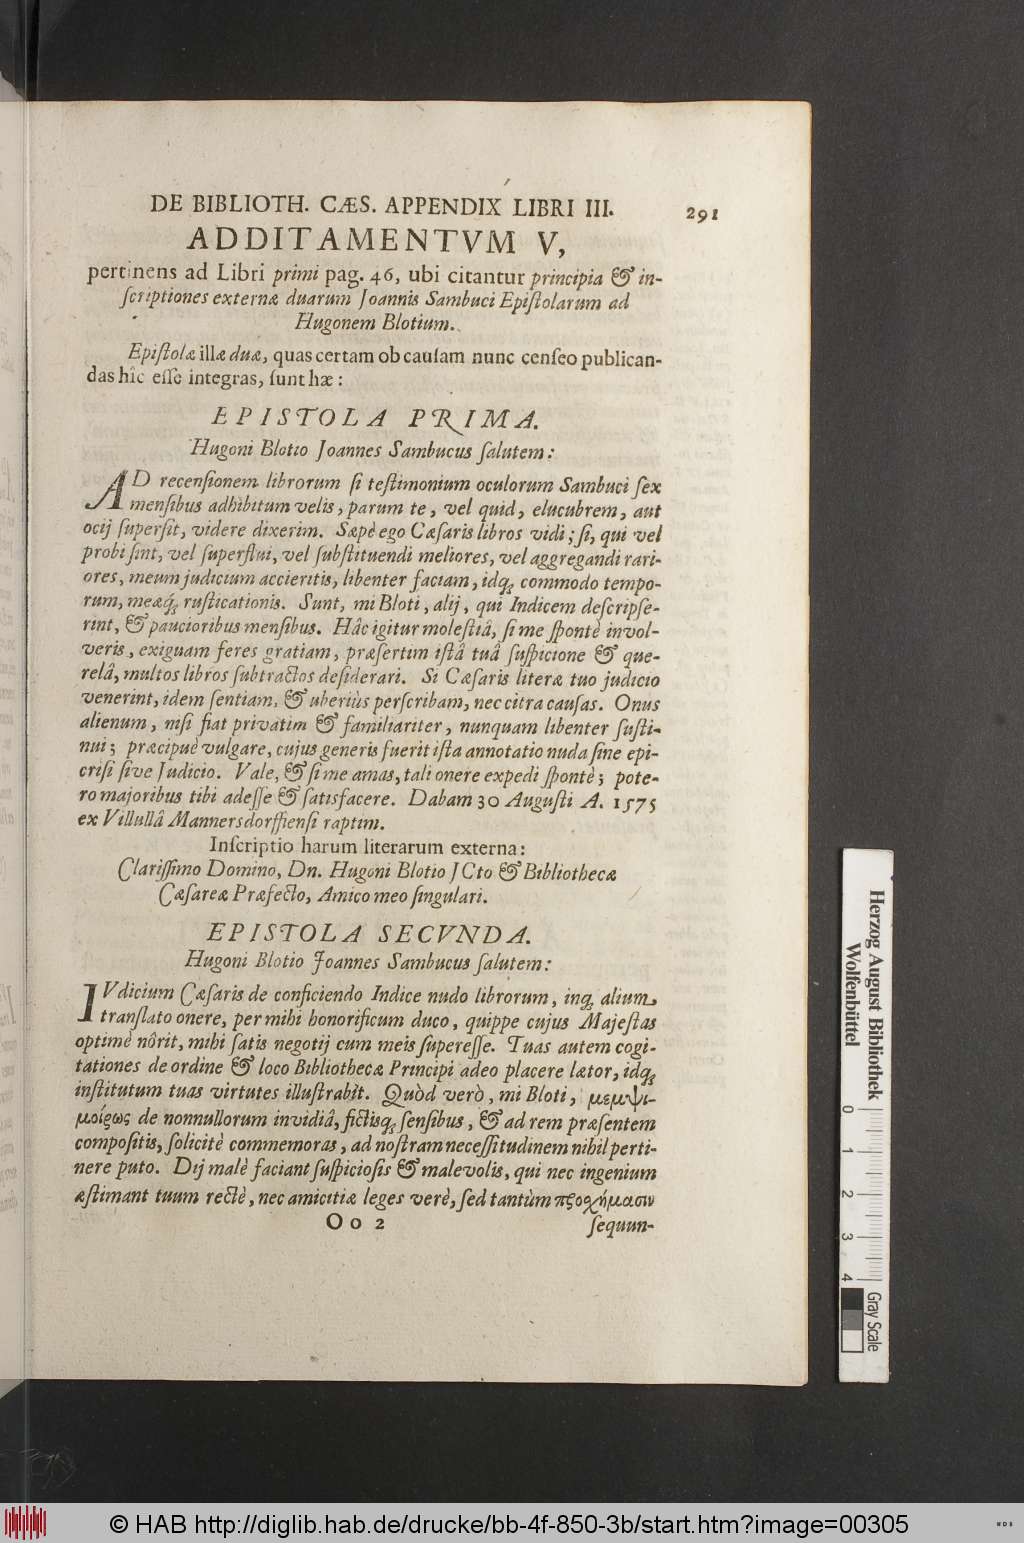 DE BIBLIOTH. CÆS. APPENDIX LIBRI III. 291
ADDITAMENTVM V,
pertinens ad Libri primi pag. 46, ubi citantur principia & in-
ſcriptiones externæ duarum Joannis Sambuci Epiſtolarum ad
Hugonem Blotium.
Epiſtolæ illæ duæ, quas certam ob cauſam nunc cenſeo publican-
das hîc eſſe integras, ſunt hæ:
EPISTOLA PRIMA.
Hugoni Blotio Joannes Sambucus ſalutem:
AD recenſionem librorum ſi teſtimonium oculorum Sambuci ſex
menſibus adhibitum velis, parum te, vel quid, elucubrem, aut
ocij ſuperſit, videre dixerim. Sæpè ego Cæſaris libros vidi; ſi, qui vel
probi ſint, vel ſuperflui, vel ſubſtituendi meliores, vel aggregandi rari-
ores, meum judicium accieritis, libenter faciam, idq́ꝫ commodo tempo-
rum, meæq́ꝫ ruſticationis. Sunt, mi Bloti, alij, qui Indicem deſcripſe-
rint, & paucioribus menſibus. Hâc igitur moleſtiâ, ſi me ſpontè invol-
veris, exiguam feres gratiam, præſertim iſtâ tuâ ſuſpicione & que-
relâ, multos libros ſubtractos deſiderari. Si Cæſaris literæ tuo judicio
venerint, idem ſentiam, & uberiùs perſcribam, nec citra cauſas. Onus
alienum, niſi fiat privatim & familiariter, nunquam libenter ſuſti-
nui; præcipuè vulgare, cujus generis fuerit iſta annotatio nuda ſine epi-
criſi ſive Judicio. Vale, & ſi me amas, tali onere expedi ſpontè; pote-
ro majoribus tibi adeſſe & ſatisfacere. Dabam 30 Auguſti A. 1575
ex Villullâ Mannersdorffienſi raptim.
Inſcriptio harum literarum externa:
Clariſſimo Domino, Dn. Hugoni Blotio JCto & Bibliothecæ
Cæſareæ Præfecto, Amico meo ſingulari.
EPISTOLA SECVNDA.
Hugoni Blotio Joannes Sambucus ſalutem:
IVdicium Cæſaris de conficiendo Indice nudo librorum, inqꝫ alium
tranſlato onere, per mihi honorificum duco, quippe cujus Majeſtas
optimè nôrit, mihi ſatis negotij cum meis ſupereſſe. Tuas autem cogi-
tationes de ordine & loco Bibliothecæ Principi adeo placere lætor, idqꝫ
inſtitutum tuas virtutes illuſtrabit. Quòd verò, mi Bloti, μεμψι-
μοίρως de nonnullorum invidiâ, fictisqꝫ ſenſibus, & ad rem præſentem
compoſitis, ſolicitè commemoras, ad noſtram neceſſitudinem nihil perti-
nere puto. Dij malè faciant ſuſpicioſis & malevolis, qui nec ingenium
æſtimant tuum rectè, nec amicitiæ leges verè, ſed tantùm προσχήμασιν
Oo 2 ſequun-
Herzog August Bibliothek
Wolfenbüttel
0 1 2 3 4
Gray Scale
© HAB http://diglib.hab.de/drucke/bb-4f-850-3b/start.htm?image=00305
WDB